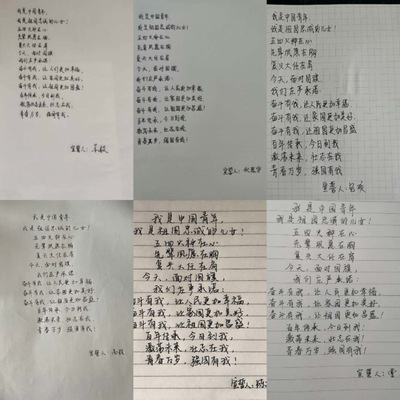 我是中国青年
我是祖国忠诚的儿女!
五四火种在心
先辈夙愿在胸
复兴大任在肩
今天,面对国旗
我们庄严承诺
奋斗有我,让人民更加幸福
奋斗有我,让家国更加美好
奋斗有我,让祖国更加昌盛
百年传承,今日到我,
激荡未来,壮志在我
青春万岁,强国有我。
宣誓人:
我是中国青年,
我是祖国忠诚的儿女!
五四火种在心
先辈夙愿在胸
复兴大任在肩
今天,面对国旗,
我们庄严承诺:
奋斗有我,让人民更加幸福
奋斗有我,让家国更加美好
奋斗有我,让祖国更加昌盛
百年传承,今日到我,
激荡未来,壮志在我,
青春万岁,强国有我!
宣誓人:
我是中国青年,
我是祖国忠诚的儿女!
五四火种在心
先辈夙愿在胸
复兴大任在肩
今天,面对国旗
我们庄严承诺:
奋斗有我,让人民更加幸福
奋斗有我,让家国更加美好,
奋斗有我,让祖国更加昌盛
百年传承,今日到我,
激荡未来,壮志在我
青春万岁,强国有我
宣誓人:
我是中国青年
我是祖国忠诚的儿女!
五四火种在心
先辈夙愿在胸
复兴大任在肩
今天,面对国旗
我们庄严承诺
奋斗有我,让人民更加幸福
奋斗有我,让家国更加美好
奋斗有我,让祖国更加昌盛!
百年传承,今日到我
激荡未来,壮志在我,
青春万岁,强国有我!
宣誓人:
我是中国青年,
我是祖国忠诚的儿女!
五四火种在心
先辈夙愿在胸
复兴大任在肩
今天,面对国旗,
我们庄严承诺:
斗有我,让人民更加幸福,
斗有我,让家国更加美好,
斗有我,让祖国更加昌盛
百年传承,今日到我,
激荡未来,壮志在我,
青春万岁,强国有我!
宣誓人:
我是中国青年
我是祖国忠诚的儿女!
五四火种在心
先辈夙愿在胸
复兴大任在肩
今天,面对国旗,
我们庄严承诺:
奋斗有我,让人民更加幸福,
奋斗有我,让家国更加美好,
奋斗有我,让祖国更加昌盛!
百年传承,今日到我,
激荡未来,壮志在我,
青春万岁,强国有我!
宣誓人: